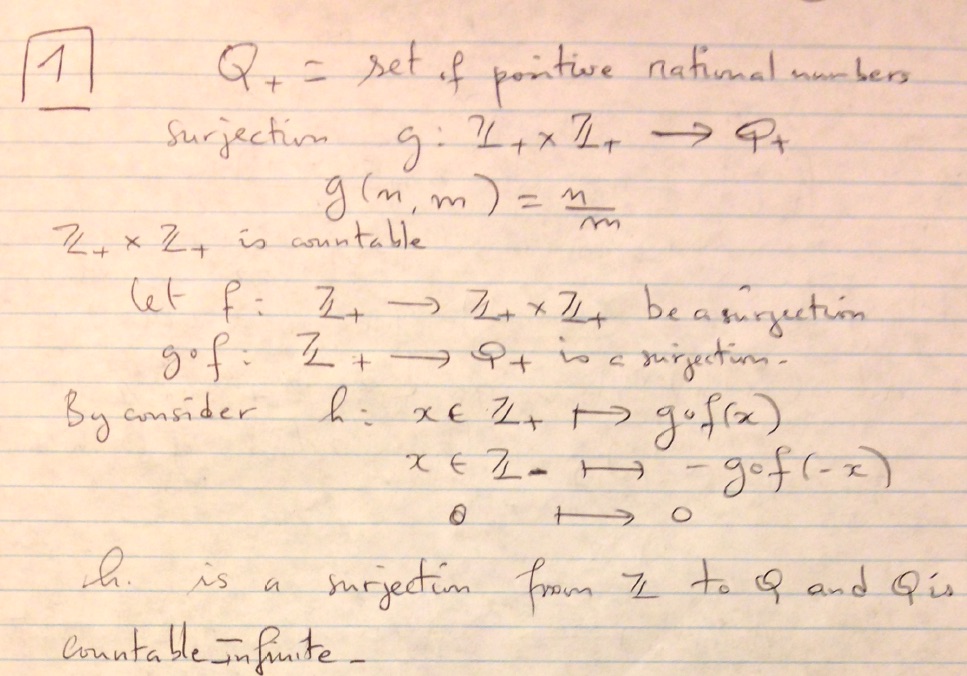 1 Q₊ = set of positive rational numbers
surjection g: ℤ₊ × ℤ₊ → Q₊
g(n, m) = n/m
ℤ₊ × ℤ₊ is countable
let f: ℤ₊ → ℤ₊ × ℤ₊ be a surjection
g∘f: ℤ₊ → Q₊ is a surjection.
By consider h: x ∈ ℤ₊ ↦ g∘f(x)
x ∈ ℤ₋ ↦ - g∘f(-x)
0 ↦ 0
h. is a surjection from ℤ to Q and Q is
countable infinite.